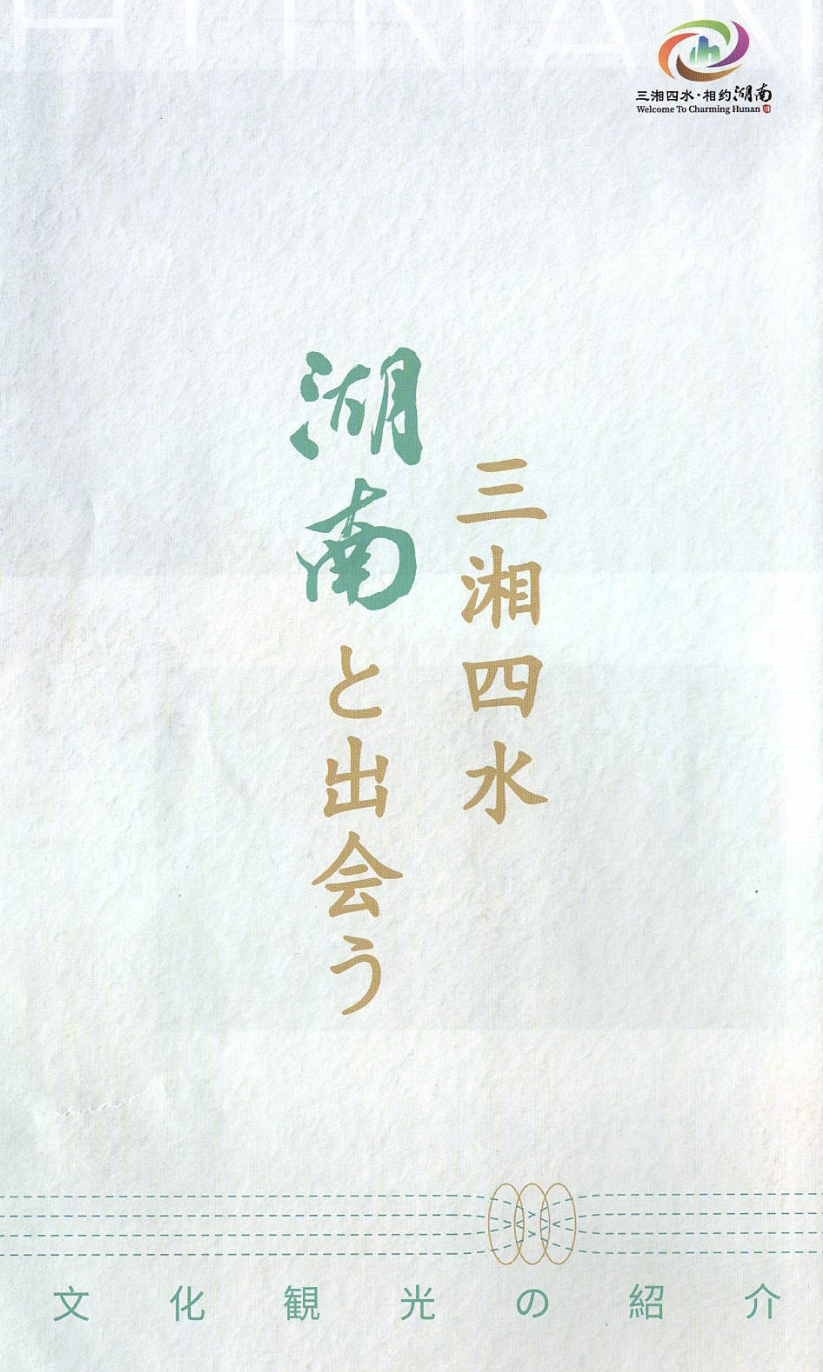 HUNAN
三湘四水·相约湖南
Welcome To Charming Hunan
三湘四水
湖南と出会う
文化観光の紹介